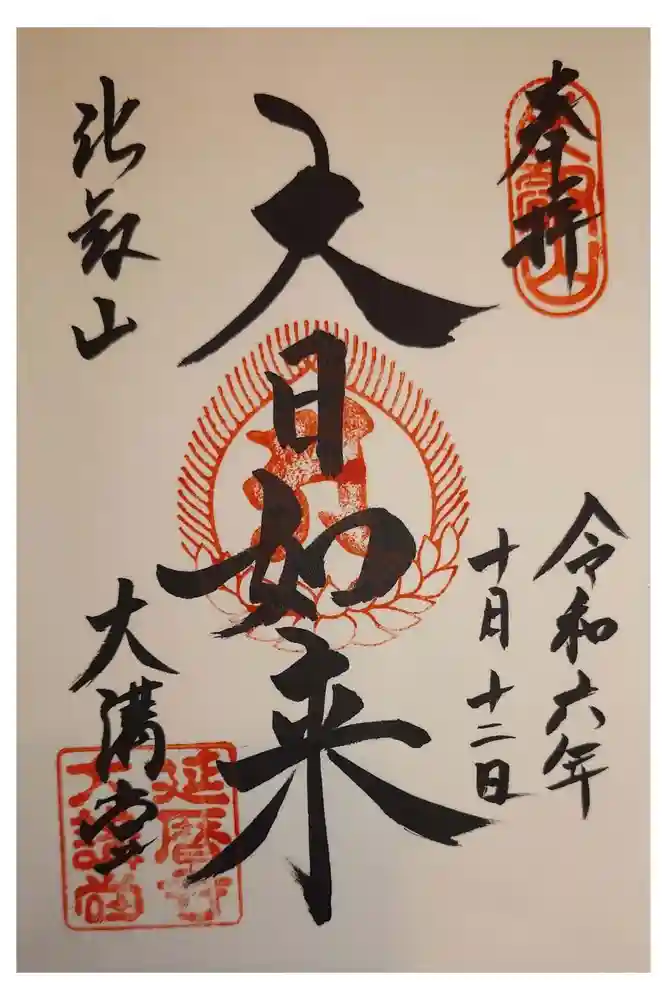 奉拝
令和六年
十月十二日
大日如来
比叡山
大講堂
延暦寺
大講堂